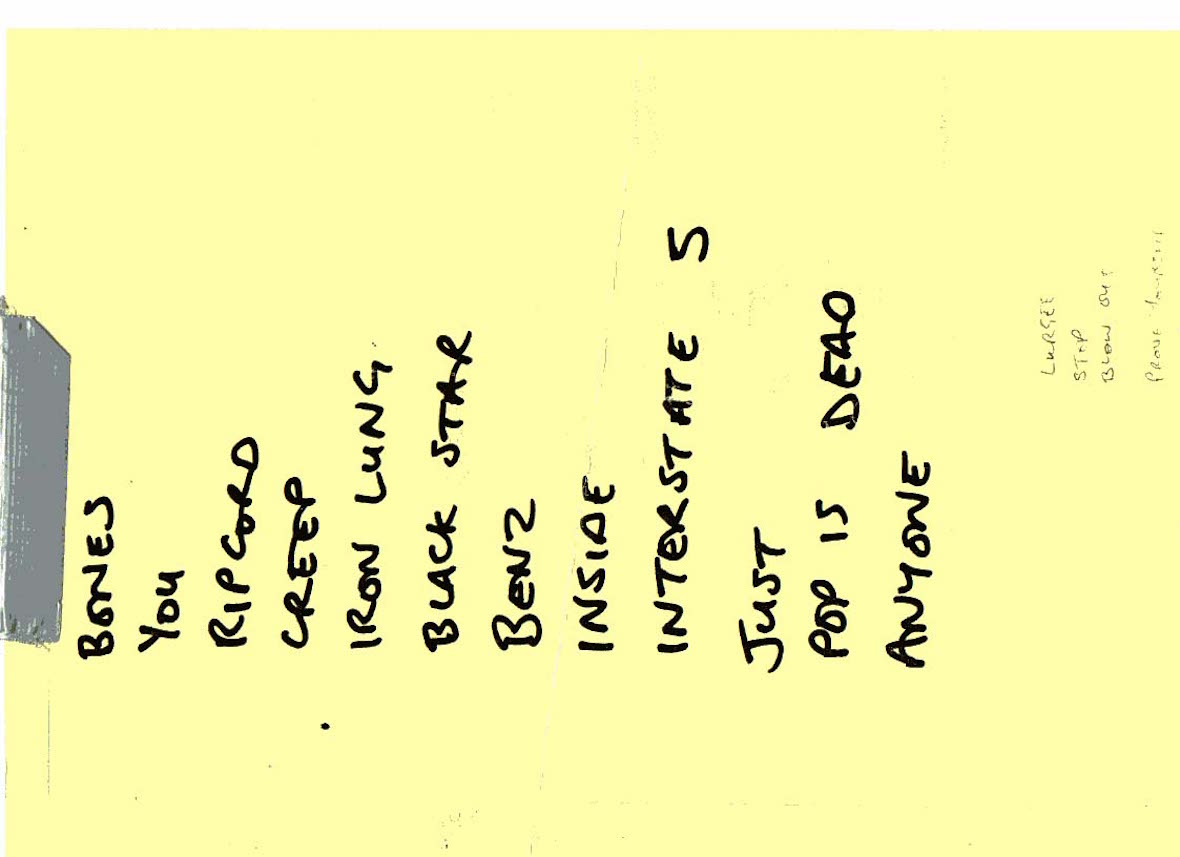 BONES
YOU
RIPCORD
CREEP
IRON LUNG.
BLACK STAR
BENZ
INSIDE
INTERSTATE 5
JUST
POP IS DEAD
ANYONE
LURGEE
STOP
BLOW OUT
PROVE YOURSELF